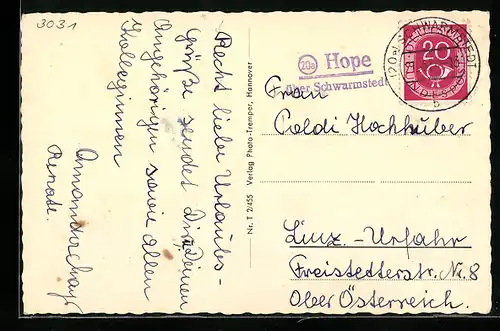 3031
Recht liebe Urlaubs-
grüße sendet Dir, Deinen
Angehörigen sowie allen
Kolleginnen
Renate.
Nr. T 2/455 Verlag Photo-Tremper, Hannover
20a Hope
über Schwarmstedt
(20a) SCHWARMSTEDT
b
DEUTSCHE BUNDESPOST
20
Frau
Poldi Hochhuber
Linz - Urfahr
Freistedterstr. Nr. 8
Ober Österreich.